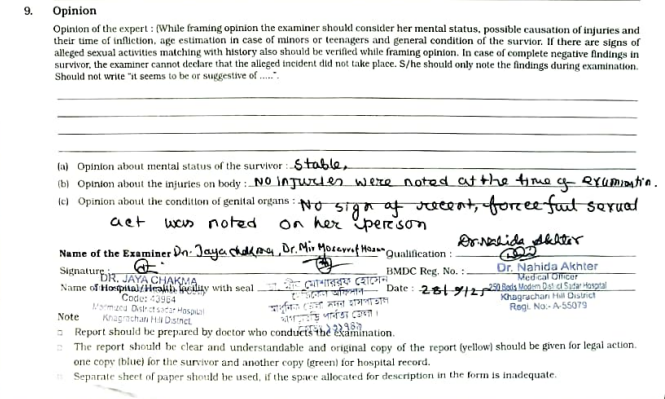 9. Opinion
Opinion of the expert : (While framing opinion the examiner should consider her mental status, possible causation of injuries and
their time of infliction, age estimation in case of minors or teenagers and general condition of the survior. If there are signs of
alleged sexual activities matching with history also should be verified while framing opinion. In case of complete negative findings in
survivor, the examiner cannot declare that the alleged incident did not take place. S/he should only note the findings during examination.
Should not write "it seems to be or suggestive of .....".
(a) Opinion about mental status of the survivor : Stable,
(b) Opinion about the injuries on body : No injuries were noted at the time of examination.
(c) Opinion about the condition of genital organs : No sign of recent, forceful sexual
act was noted on her person
Name of the Examiner Dr. Jaya chakma, Dr. Mir Mosarrof Hosen Qualification : Dr. Nahida Akhter
Signature : BMDC Reg. No. : Dr. Nahida Akhter
DR. JAYA CHAKMA Medical Officer
Name of Hospital/Health facility with seal Date : 28/9/25 250 Beds Modern District Sadar Hospital
Code: 43964 Khagrachari Hill District
District sadar Hospital Regi. No:- A-55079
Khagrachari Hill District
Note
Report should be prepared by doctor who conducts the examination.
The report should be clear and understandable and original copy of the report (yellow) should be given for legal action.
one copy (blue) for the survivor and another copy (green) for hospital record.
Separate sheet of paper should be used, if the space allocated for description in the form is inadequate.